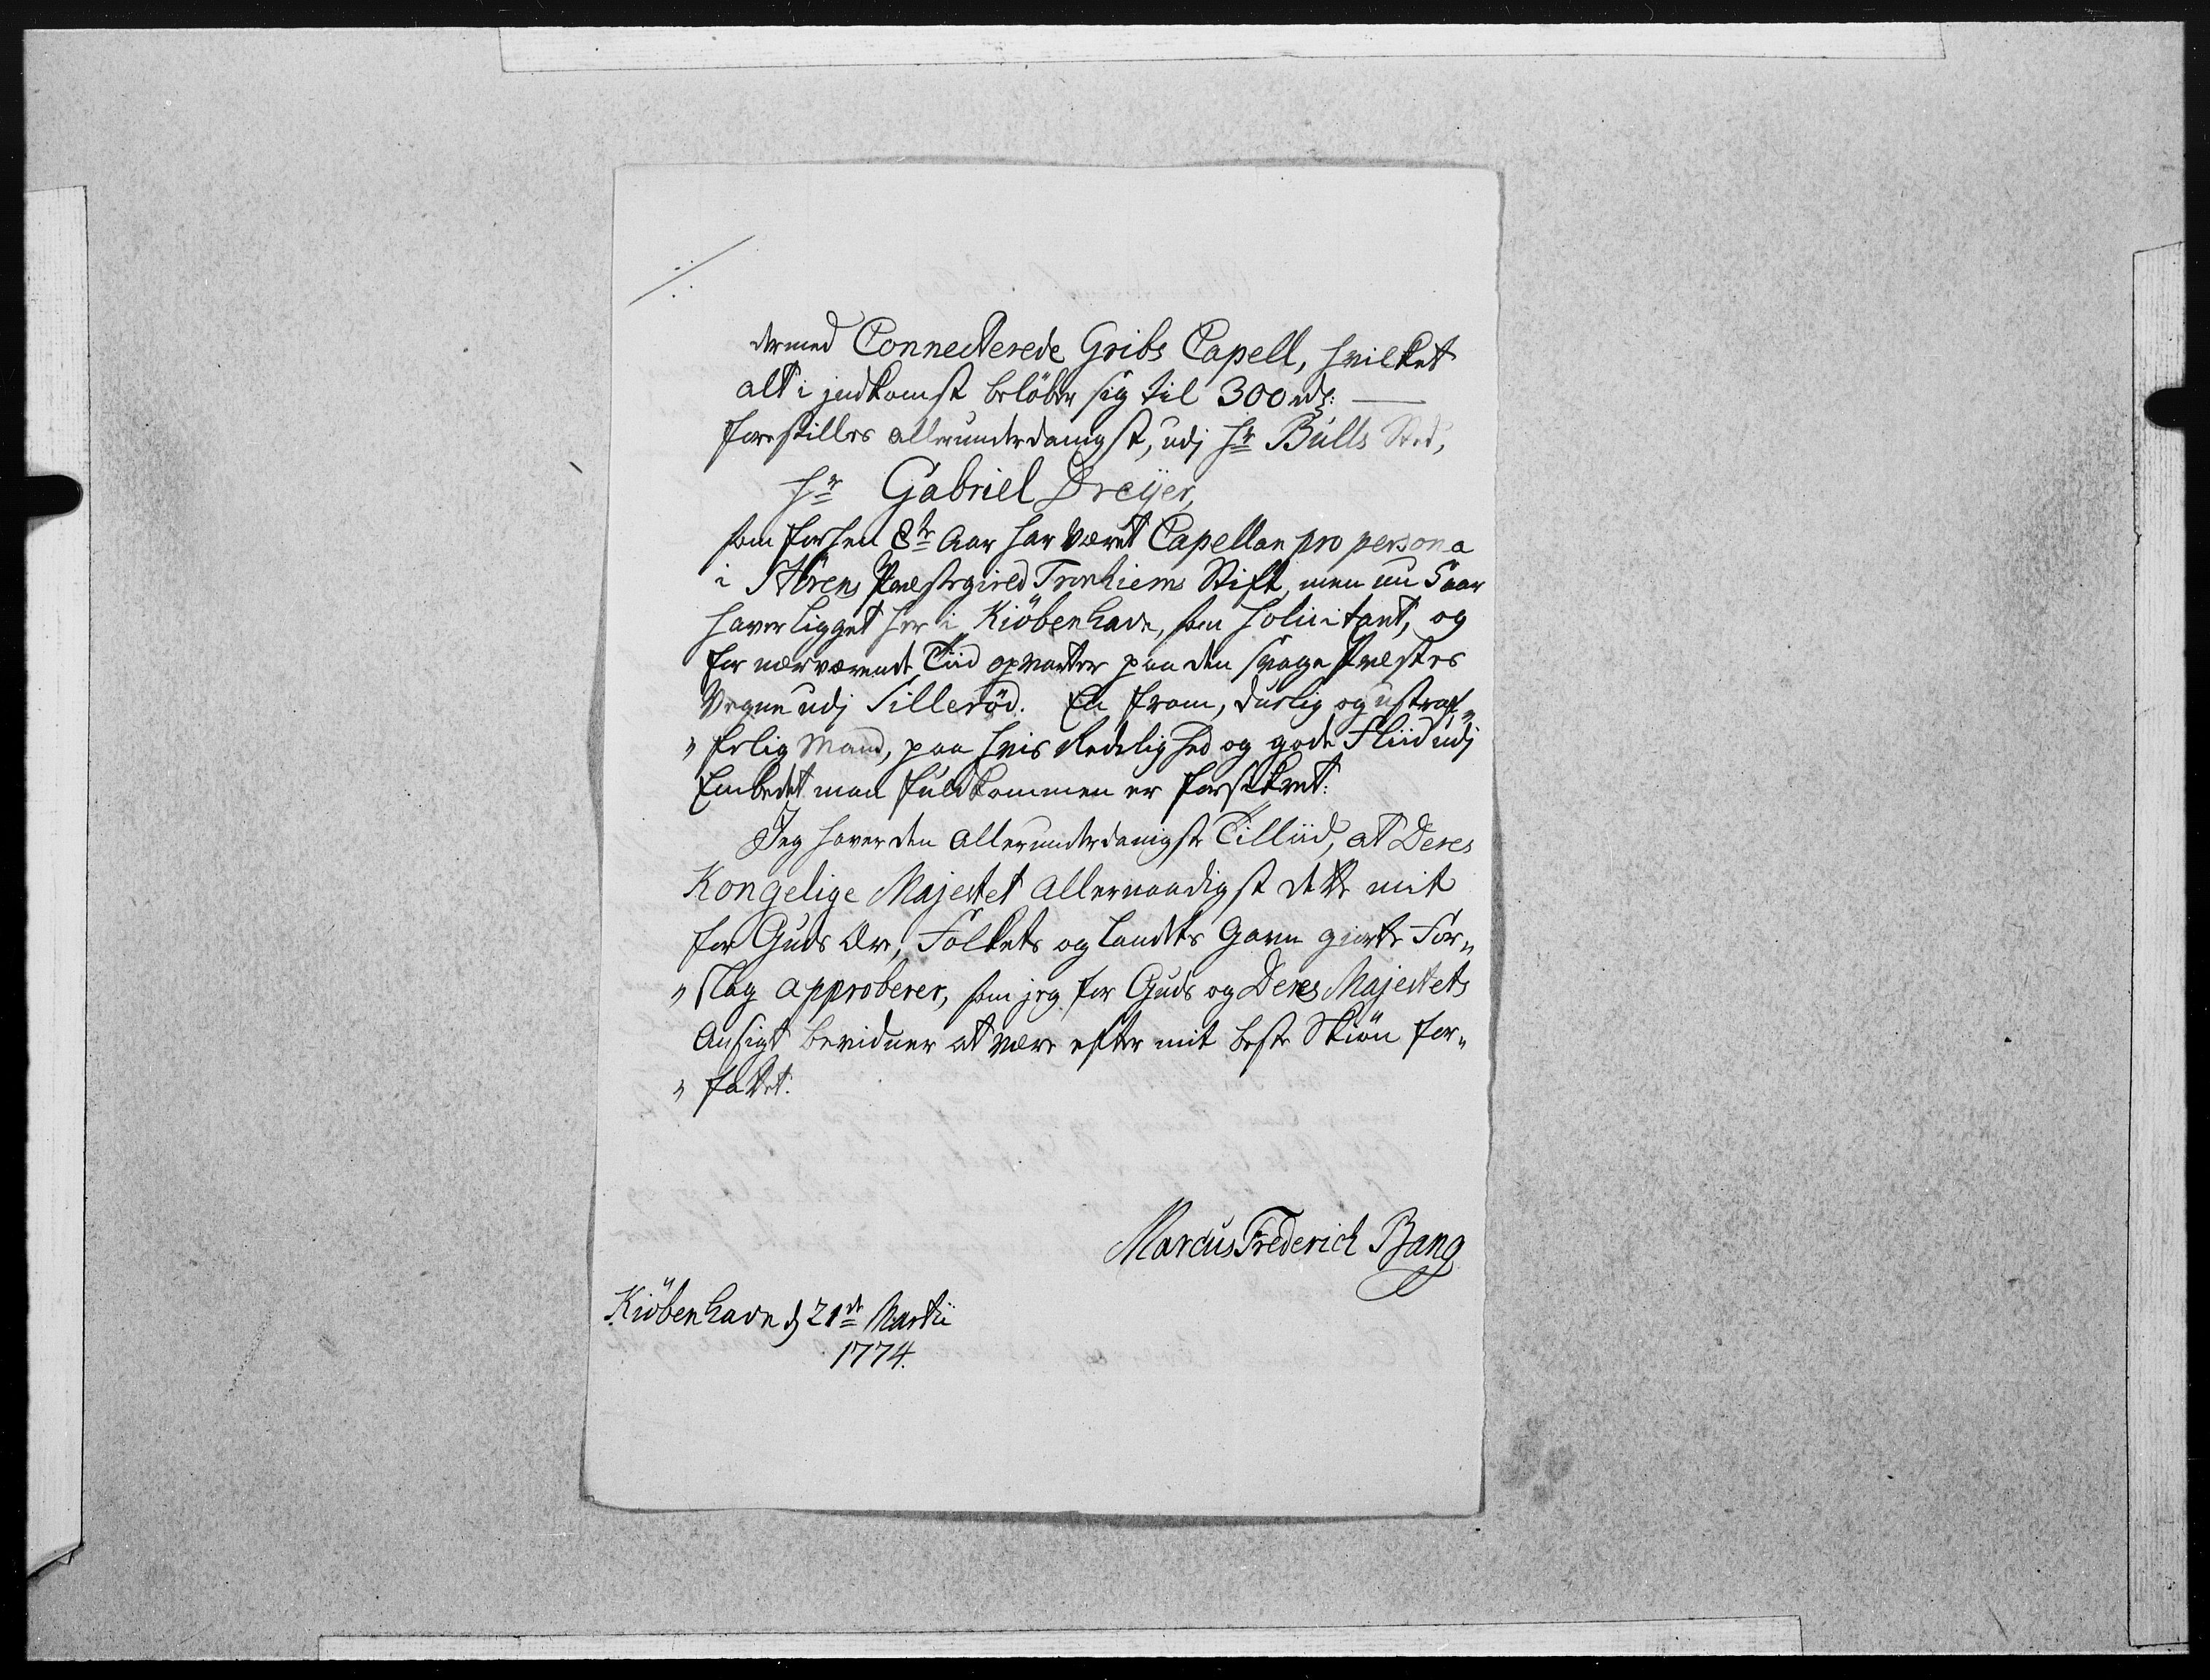 dermed Connecterede Gribs Capell, hvilket
alt i indkomst beløber sig til 300 rdr:
forestilles allerunderdanigst, udj Hr Bulls Sted,
Hr Gabriel Dreÿer,
som forhen 8te Aar har været Capellan pro persona
i Størens Præstegield Tronhiems Stift, men nu 5 aar
haver ligget her i Kiöbenhavn, som Solicitant, og
for nærværende Tiid opvarter paa den svage Præstes
Vegne udj Sillerød. En from, duelig og ustraf„
„felig Mand, paa hvis Redelighed og gode Fliid udj
Embedet man fuldkommen er forsikret:
Jeg haver den allerunderdanigste Tilliid, at Deres
Kongelige Majestet allernaadigst dette mit
for Guds Ære, Folkets og Landets Gavn giorte For„
„slag approberer, som jeg for Guds og Deres Majestets
Ansigt bevidner at være efter mit beste Skiøn for„
„fattet.
Marcus Frederich Bang
Kiöbenhavn d 21de Martii
1774.